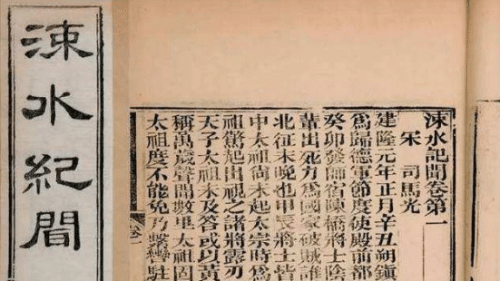 涑水紀聞
涑水記聞卷第一
宋 司馬光
建隆元年正月辛丑朔鎮
爲歸德軍節度使殿前都
癸卯發師宿陳橋將士陰
輩出死力爲國家破賊誰
北征未晚也甲辰將士皆
申太祖尚未起太宗時爲
祖驚起出視之諸將露刃
天子太祖未及答或以黃
稱萬歲聲聞數里太祖固
太祖度不能免乃攬轡駐
卷一